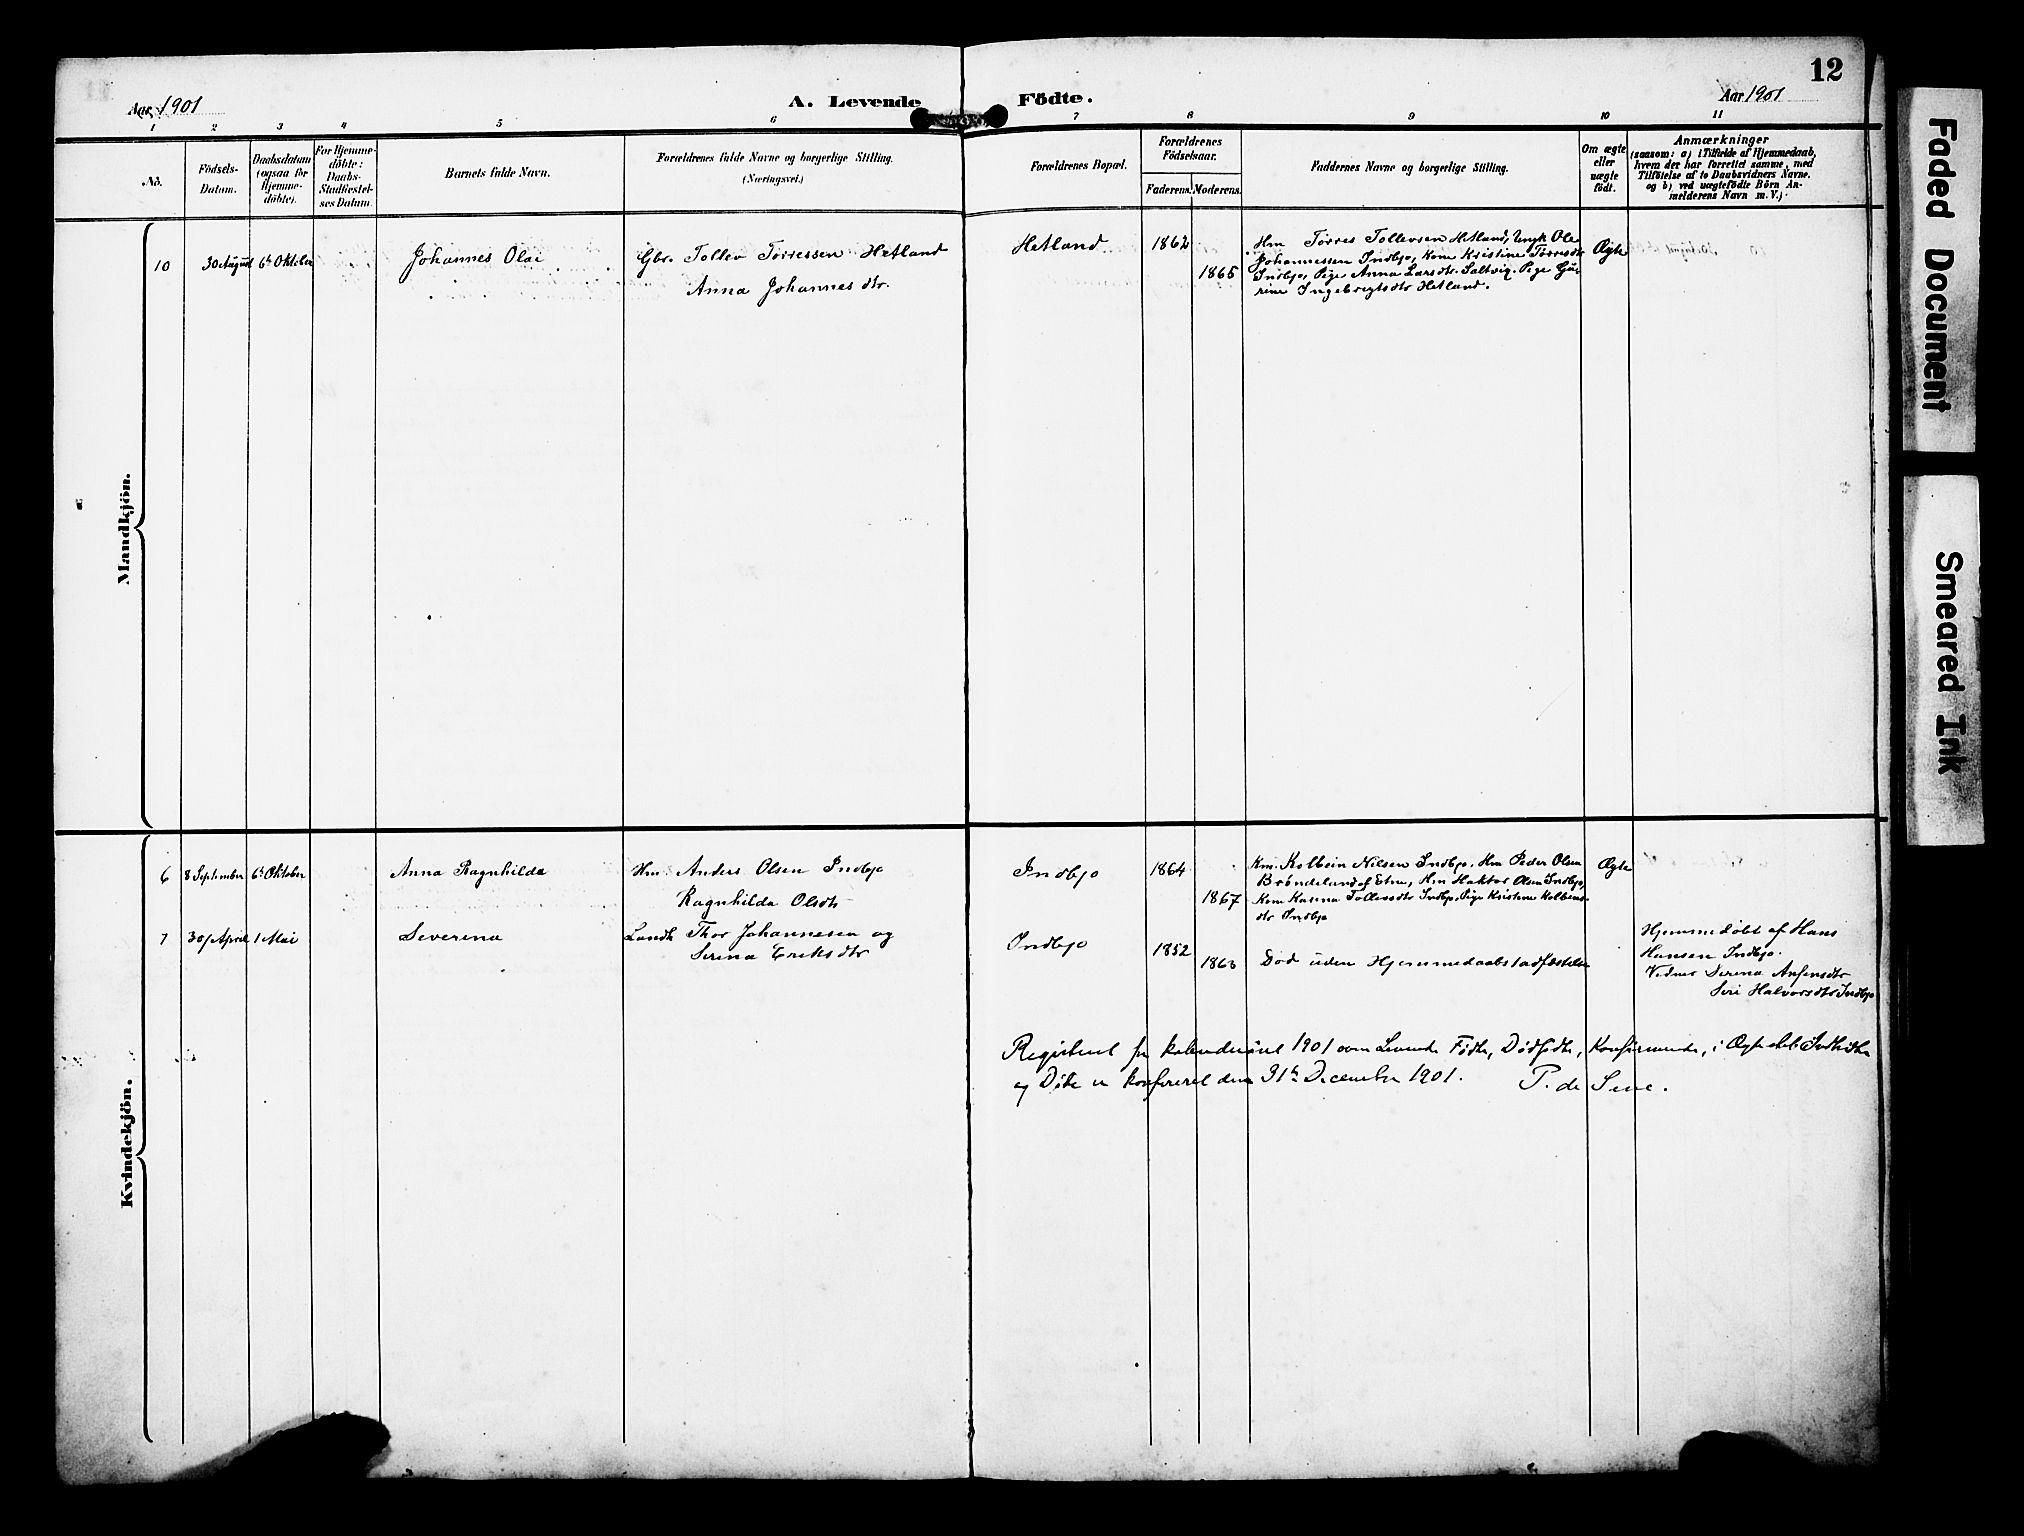 12
Aar 1901
A. Levende Födte.
Aar 1901
1 2 3 4 5 6 7 8 9 10 11
No.
Födsels-
Datum.
Daabsdatum
(ogsaa for
Hjemme-
döbte).
For Hjemme-
döbte:
Daabs-
Stadfæstel-
ses Datum.
Barnets fulde Navn.
Forældrenes fulde Navne og borgerlige Stilling.
(Næringsvei.)
Forældrenes Bopæl.
Forældrenes
Födselsaar.
Faderens. Moderens.
Faddernes Navne og borgerlige Stilling.
Om ægte
eller
uægte
födt.
Anmærkninger
(saasom: a) i Tilfælde af Hjemmedaab,
hvem der har forrettet samme, med
Tilföielse af to Daabsvidners Navne,
og b) ved uægtefödte Börn An-
melderens Navn m. V.)
Mandkjön.
10 30 August 6te Oktober
Johannes Olai
Gbr. Tollev Tørressen Hetland
Anna Johannesdtr.
Hetland
1862
1865
Hm Tørres Tollevsen Hetland, Ungk Ole
Johannessen Indbjo, Kone Kristine Tørresdtr
Indbjo, Pige Anna Larsdtr. Saltvig. Pige Gu-
rine Ingebrigtsdtr Hetland.
Ægte
Kvindekjön.
6 8 September 6te Oktober
Anna Ragnhilda
Hm. Anders Olsen Indbjo
Ragnhilda Olsdtr
Indbjo
1864
1867
Km. Kolbein Nilsen Indbjo, Hm Peder Olsen
Brøndeland af Etne, Hm Haktor Olsen Indbjo,
Kone Karina Tollevsdtr Indbjo, Pige Kristine Kolbens-
dtr Indbjo
Ægte
7 30/April 1 Mai
Severina
Landh Thor Johannesen og
Serina Eriksdtr
Indbjo
1852
1863
Død uden Hjemmedaabstadfæstelse
Hjemmedøbt af Hans
Hansen Indbjo.
Vidner Serina Anfensdtr
Siri Halvorsdtr Indbjo
Registeret for kalenderaaret 1901 over Levende Fødte, Dødfødte, Konfirmerede, i Ægteskab Indtrådte
og Døde er konfereret den 31te December 1901. P. de Seue.
Faded Document
Smeared Ink